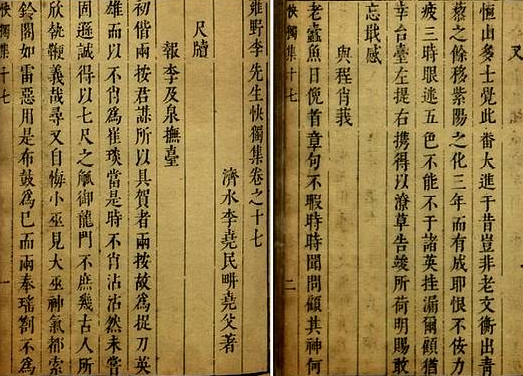 雍野李先生快獨集卷之十七
濟水李堯民畊堯父著
尺牘
報李及泉撫臺
初偕兩按君謀所以具賀者兩按故為捉刀英
雄而以不肖為崔琰當是時不肖沾沾然未嘗
固遜誠得以七尺之觚御龍門不庶幾古人所
欣執鞭義哉尋又自悔小巫見大巫神氣都索
鈴閣如雷惡用是布鼓為已而兩奉瑤劄不為
快獨集十七 一
又
恆山多士覺此番大進于昔豈非老文衡出青
藜之餘移紫陽之化三年而有成耶恨不佞力
疲三時眼迷五色不能不于諸英挂漏爾顧猶
幸台臺左提右携得以潦草告竣所荷明賜敢
忘戢感
與程肖莪
老蠹魚日俛首章句不暇時時聞問顧其神何
快獨集十七 二